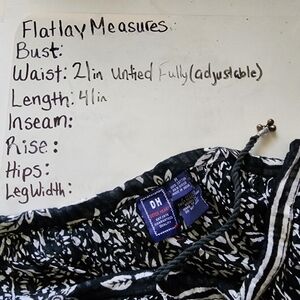 Flatlay Measures
Bust:
Waist: 21in Untied Fully (adjustable)
Length: 41in
Inseam:
Rise:
Hips:
Leg Width:
HO